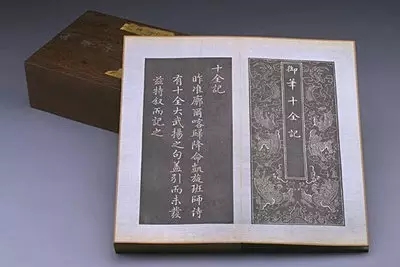 御筆十全記
十全記
昨准廓爾喀歸降命凱旋班師詩
有十全大武揚之句蓋引而未發
茲特叙而記之